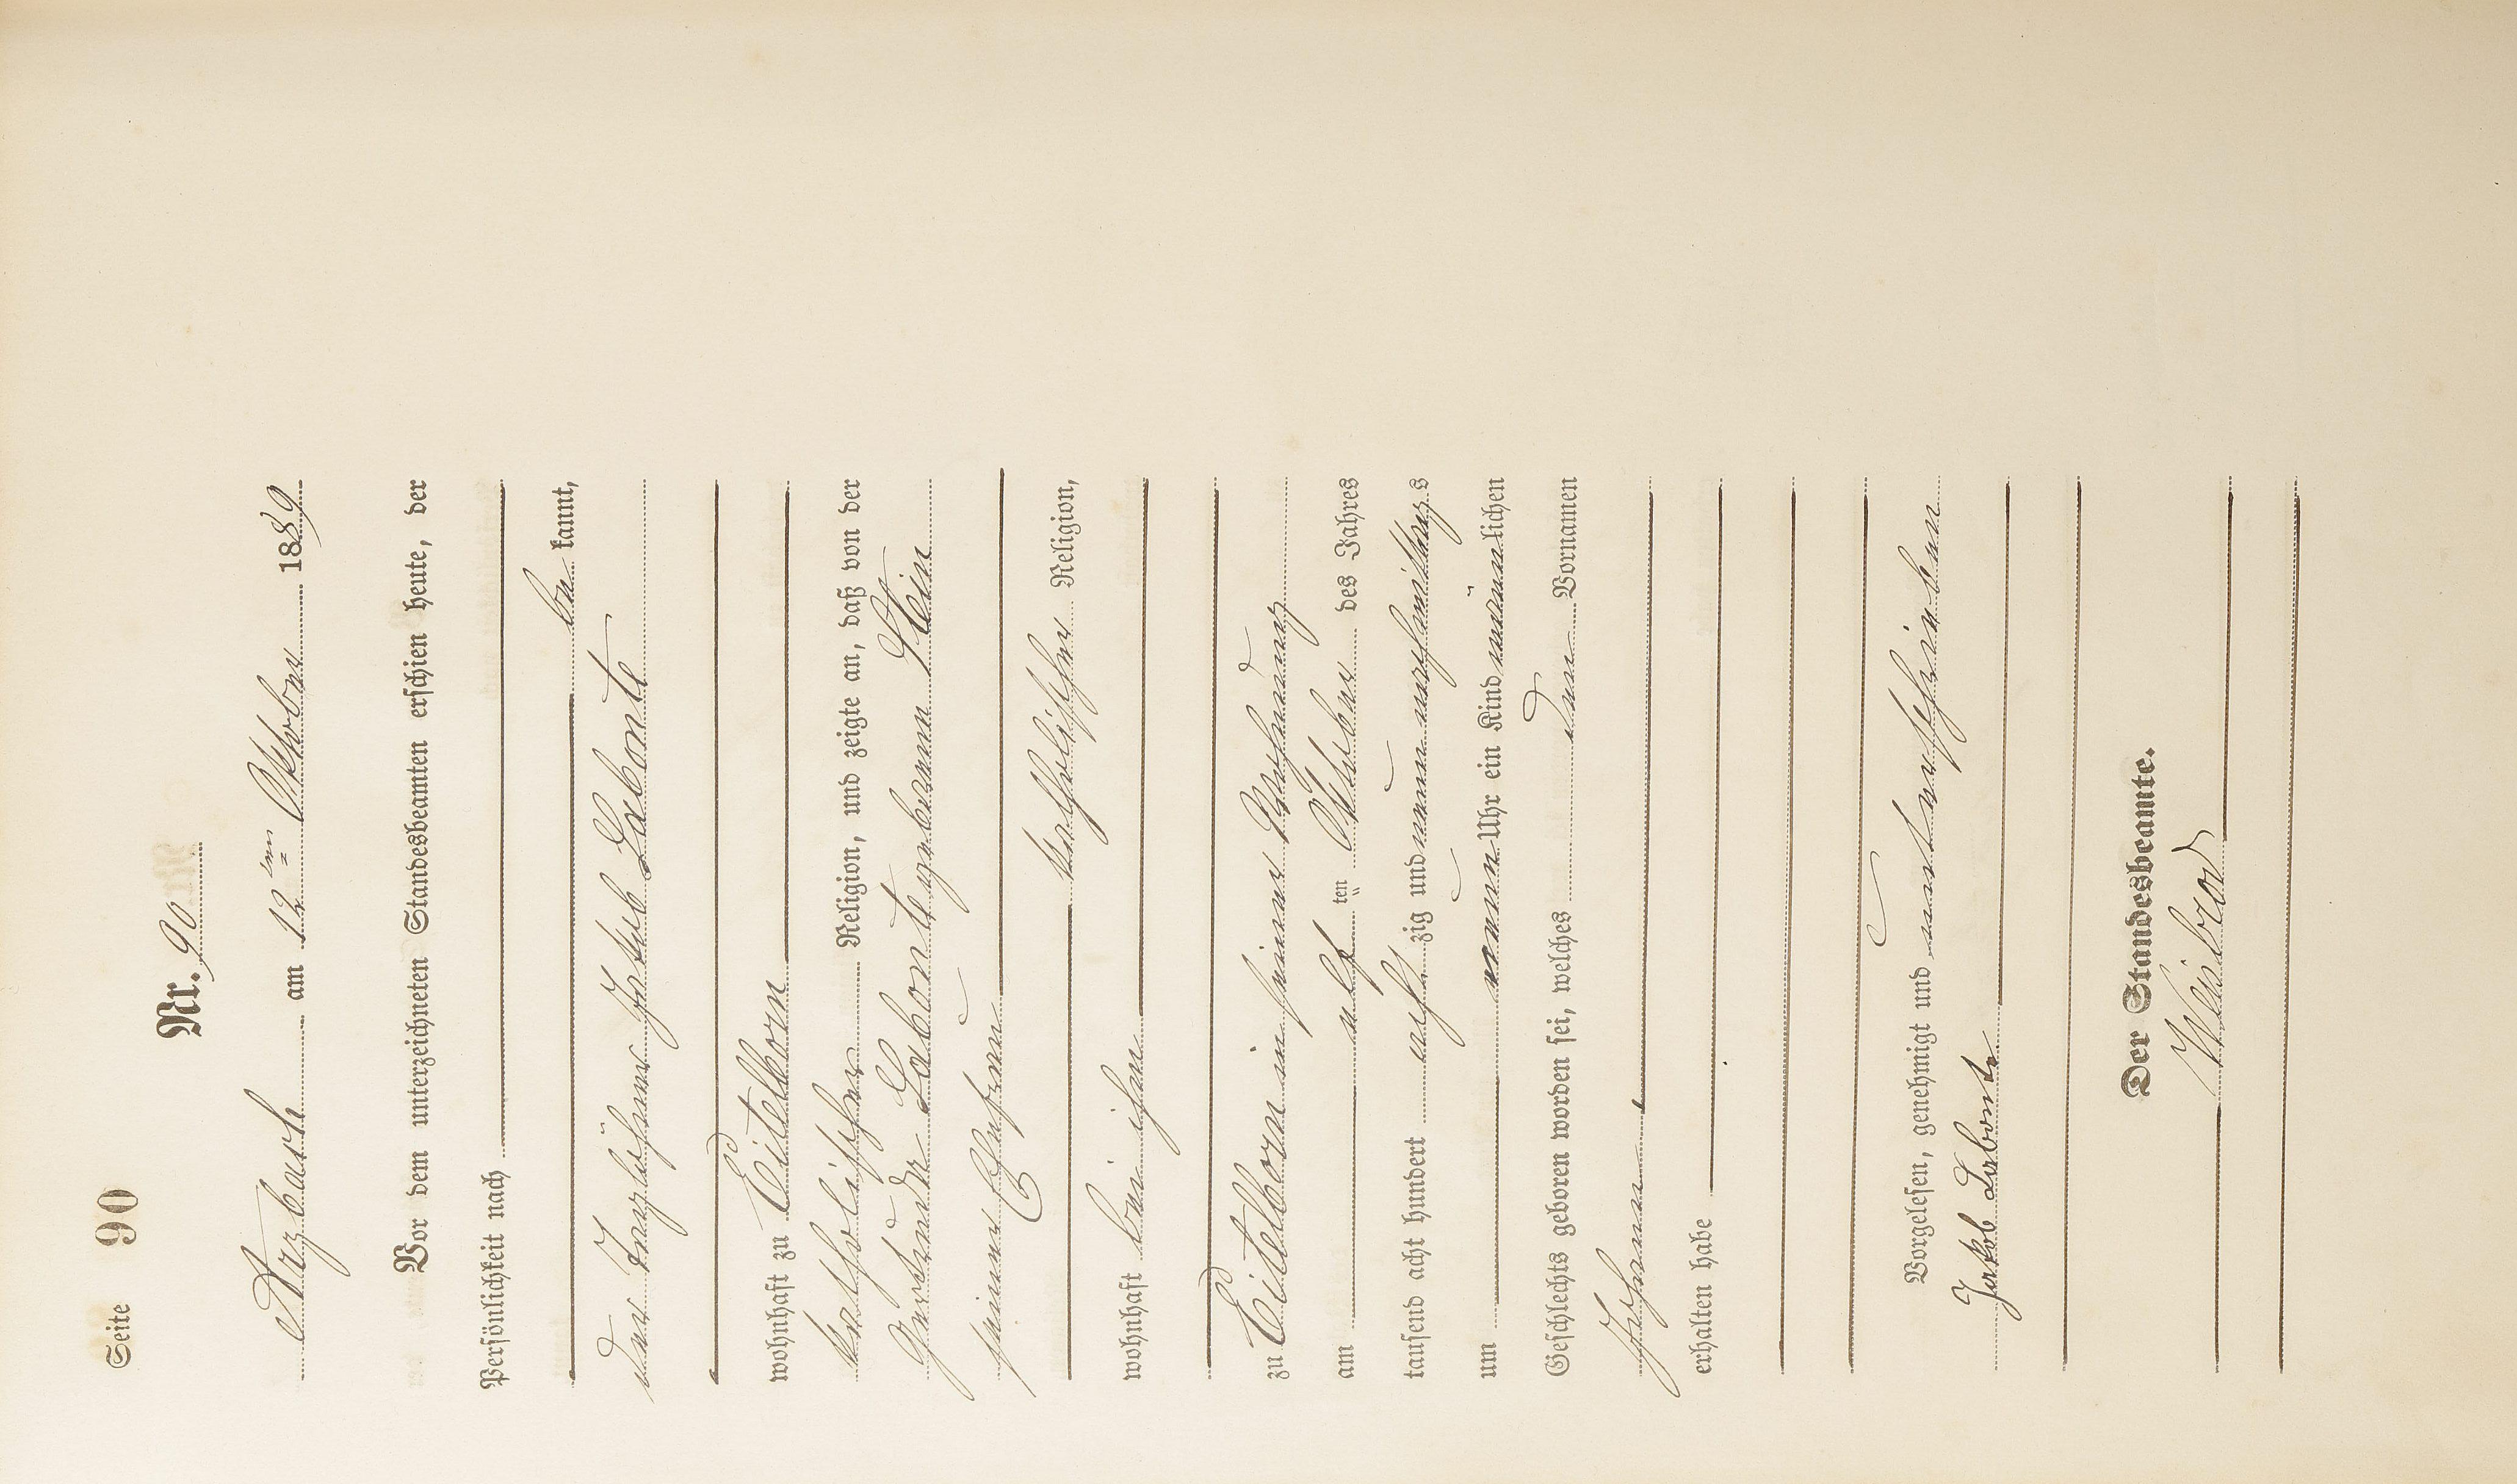 Seite 90
Nr. 90
Arzbach am 12ten Oktober 1889
Vor dem unterzeichneten Standesbeamten erschien heute, der
Persönlichkeit nach
be kannt,
der Taglöhner Jakob Labonte
wohnhaft zu Eitelborn
katholischer Religion, und zeigte an, daß von der
Gertrude Labonte geborenen Stein
seiner Ehefrau
katholischer Religion,
wohnhaft bei ihm
zu Eitelborn in seiner Wohnung
am elf ten Oktober des Jahres
tausend acht hundert acht zig und neun nachmittags
um neun Uhr ein Kind männlichen
Geschlechts geboren worden sei, welches den Vornamen
Johann
erhalten habe
Vorgelesen, genehmigt und unterschrieben
Jakob Labonte
Der Standesbeamte.
Weibrod